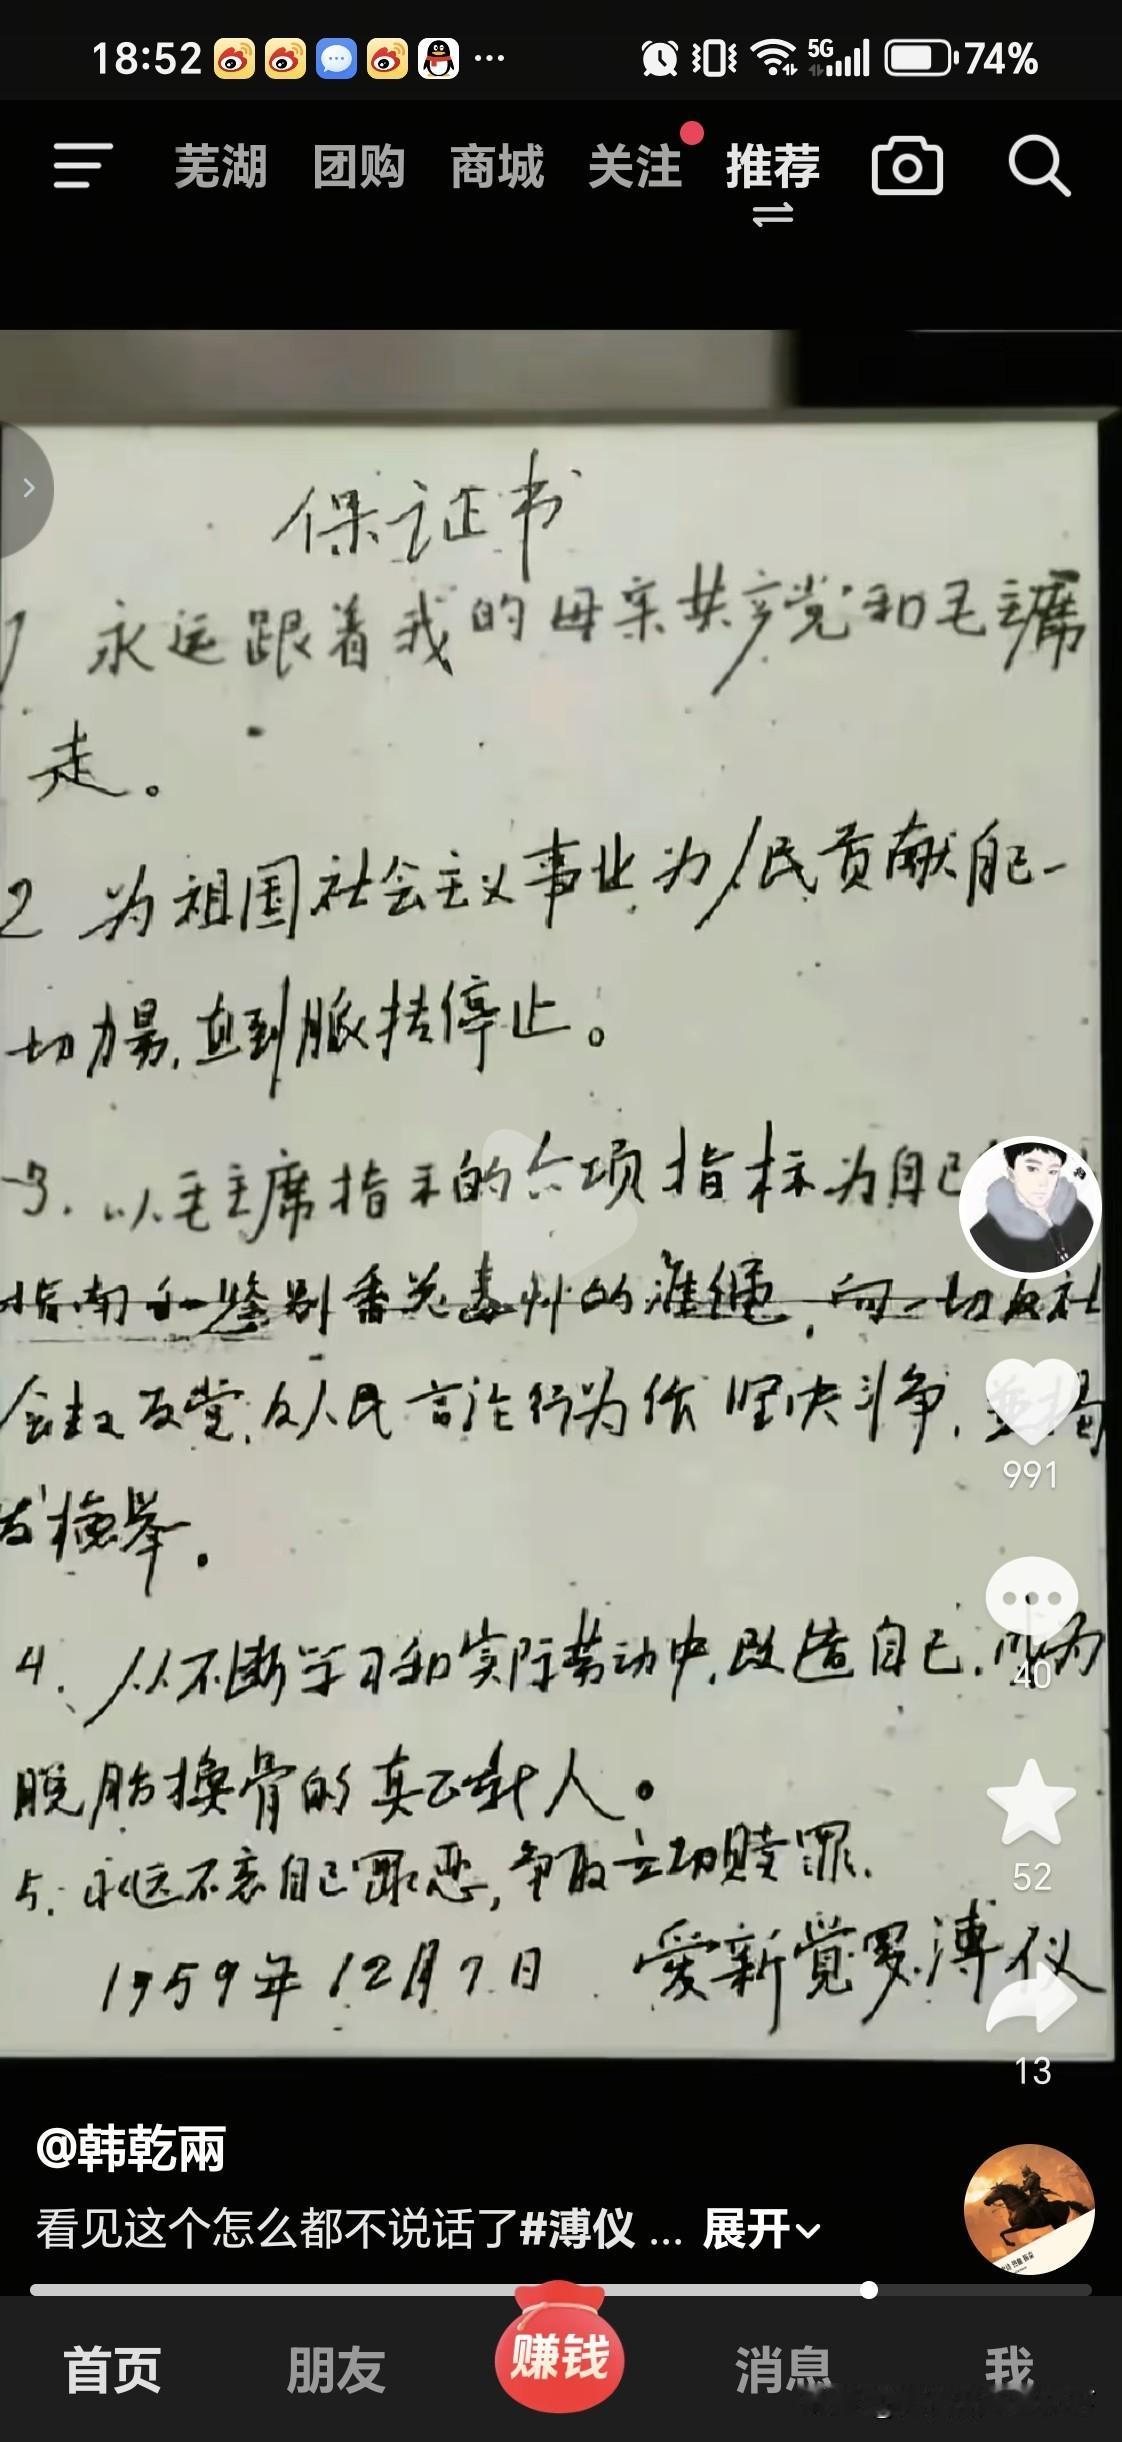 18:52
5G
74%
芜湖 团购 商城 关注 推荐
保证书
1 永远跟着我的母亲共产党和毛主席
走。
2 为祖国社会主义事业为人民贡献自己一
切力量,直到脉搏停止。
3. 以毛主席指示的六项指标为自己
指南和鉴别香花毒草的准绳,向一切反社
会主义反党,反人民言论行为作坚决斗争,并揭
发检举.
4. 从不断学习和实际劳动中,改造自己,成为
脱胎换骨的真正新人。
5. 永远不忘自己罪恶,争取立功赎罪.
1959年12月7日 爱新觉罗.溥仪
991
40
52
13
@韩乾兩
看见这个怎么都不说话了#溥仪 ... 展开
首页 朋友 赚钱 消息 我